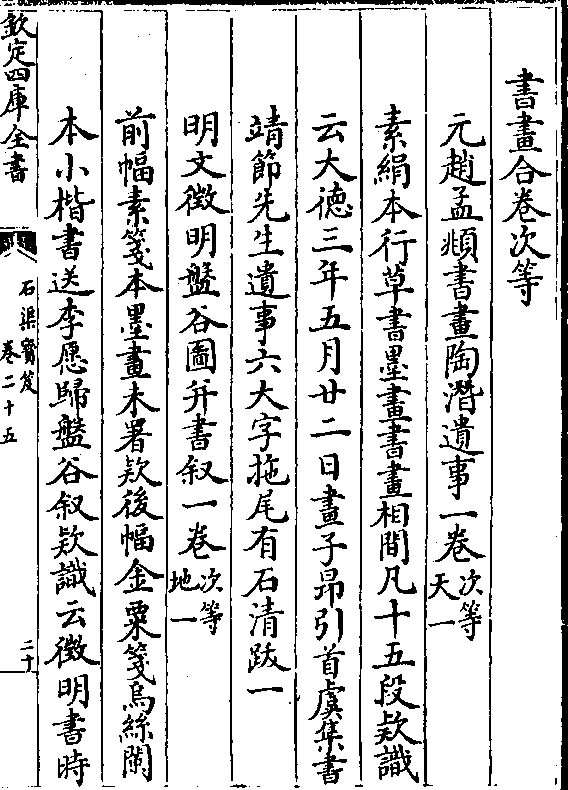 書畫合卷次等
元趙孟頫書畫陶潛遺事一卷次等天一
素絹本行草書墨畫書畫相間凡十五段欵識
云大德三年五月廿二日畫子昂引首虞集書
靖節先生遺事六大字拖尾有石清跋一
明文徵明盤谷圖并書叙一卷次等地一
前幅素箋本墨畫未署欵後幅金粟箋烏絲闌
本小楷書送李愿歸盤谷叙欵識云徵明書時
欽定四庫全書
石渠寳笈
卷二十五
二十